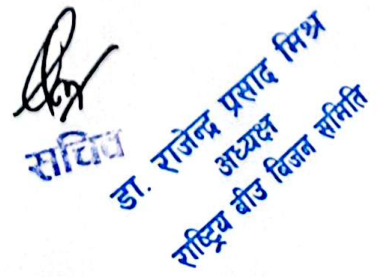 सचिव
डा. राजेन्द्र प्रसाद मिश्र
अध्यक्ष
राष्ट्रिय बीउ विजन समिति